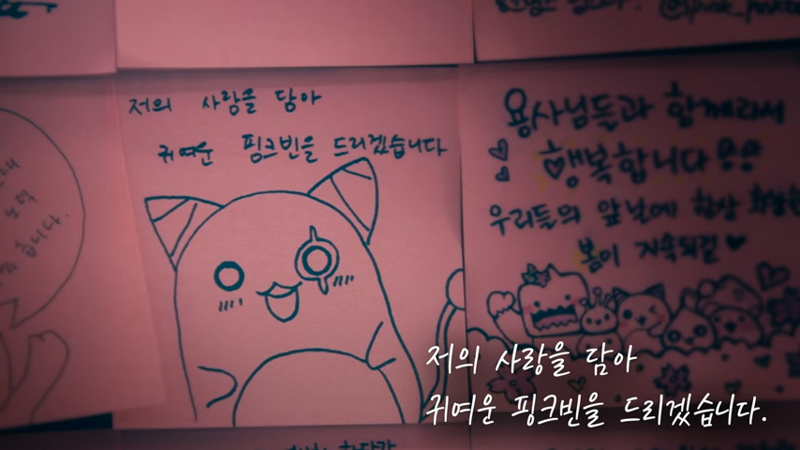 @pink_
저의 사랑을 담아
귀여운 핑크빈을 드리겠습니다
용사님들과 함께라서
행복합니다
우리들의 앞날에 항상
봄이 지속되길
노력
습니다.
저의 사랑을 담아
귀여운 핑크빈을 드리겠습니다.